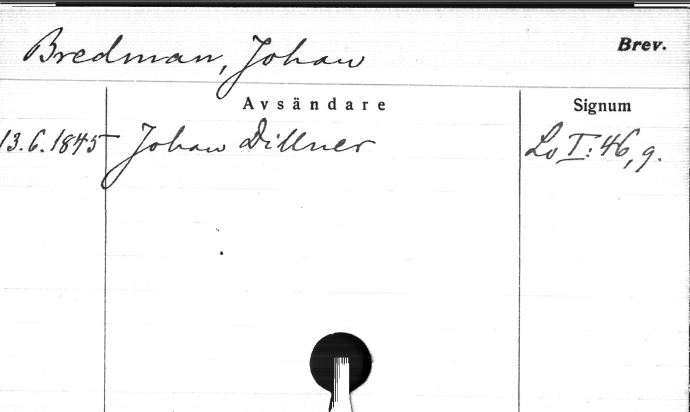 Bredman, Johan
Brev.
Avsändare
Signum
13.6.1845
Johan Dillner
Lv I:46, 9.